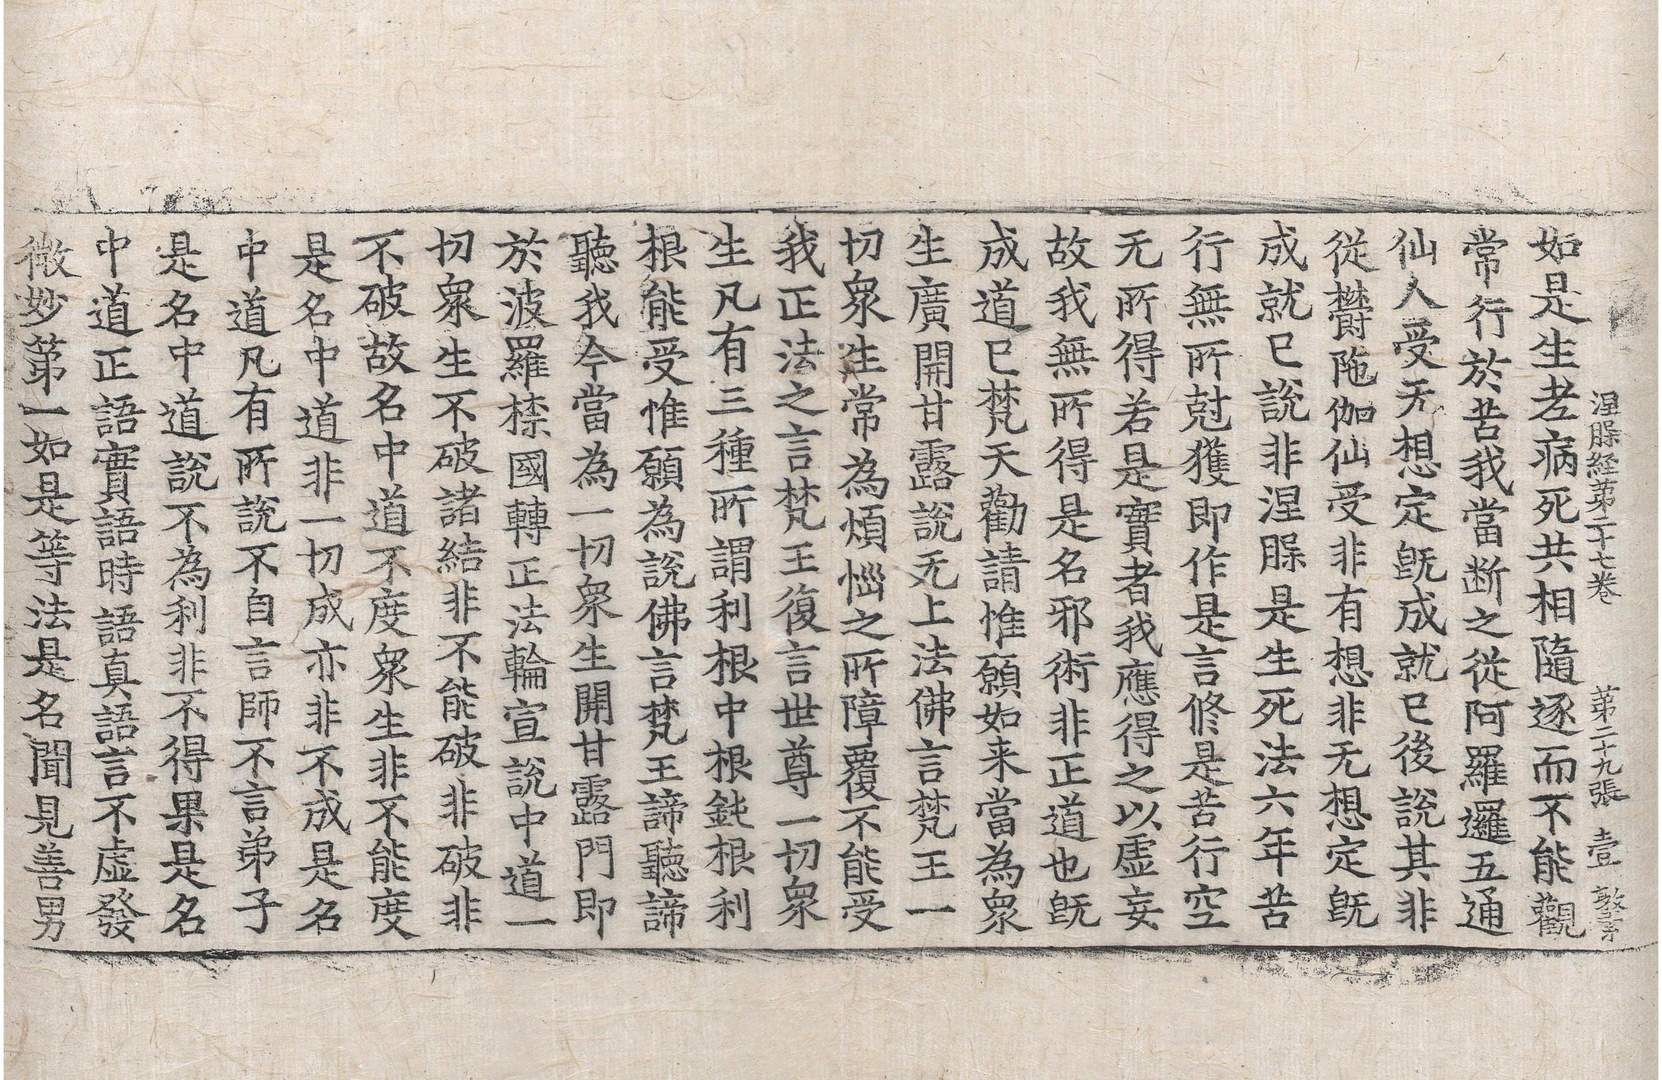 涅槃経第二十七卷 第二十九張 壹
如是生老病死共相隨逐而不能觀
常行於苦我當断之從阿羅邏五通
仙人受无想定既成就已後說其非
從鬱陁伽仙受非有想非无想定既
成就已說非涅槃是生死法六年苦
行無所尅獲即作是言修是苦行空
无所得若是實者我應得之以虛妄
故我無所得是名邪術非正道也既
成道已梵天勸請惟願如来當為衆
生廣開甘露說无上法佛言梵王一
切衆生常為煩惱之所障覆不能受
我正法之言梵王復言世尊一切衆
生凡有三種所謂利根中根鈍根利
根能受惟願為說佛言梵王諦聽諦
聽我今當為一切衆生開甘露門即
於波羅㮈國轉正法輪宣說中道一
切衆生不破諸結非不能破非破非
不破故名中道不度衆生非不能度
是名中道非一切成亦非不成是名
中道凡有所說不自言師不言弟子
是名中道說不為利非不得果是名
中道正語實語時語真語言不虛發
微妙第一如是等法是名聞見善男